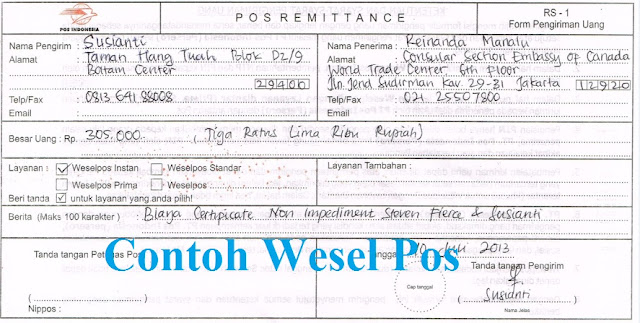 POS INDONESIA
POS REMITTANCE
RS - 1
Form Pengiriman Uang
Nama Pengirim : Susianti
Alamat : Taman Hang Tuah Blok D2/9
Batam Center
29400
Telp/Fax : 0813 641 88008
Email :
Nama Penerima : Reinanda Manalu
Alamat : Consular Section Embassy of Canada
World Trade Center, 6th Floor
Jln. Jend Sudirman Kav. 29-31 Jakarta 12920
Telp/Fax : 021 25507800
Email :
Besar Uang : Rp. 305.000.- (Tiga Ratus Lima Ribu Rupiah)
Layanan : Weselpos Instan Weselpos Standar
Weselpos Prima Weselpos
Beri tanda untuk layanan yang anda pilih!
Layanan Tambahan :
Berita (Maks 100 karakter) : Biaya Certipicate Non Impediment Steven Fierce & Susianti
Contoh Wesel Pos
Tanda tangan Petugas Pos
Nippos :
Tanggal 10 2013
Cap tanggal
Tanda tangan Pengirim
Susianti
Nama Jelas